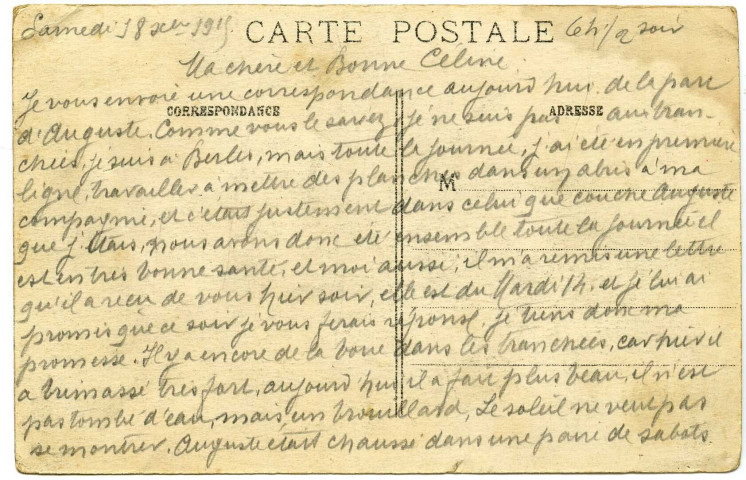 Samedi 18 Xbre 1915 CARTE POSTALE 6h 1/2 soir
Ma chère et Bonne Céline
Je vous envoie une correspondance aujourd'hui de la part
CORRESPONDANCE ADRESSE
d'Auguste. Comme vous le savez, je ne suis pas aux tran-
chées, je suis à Berles, mais toute la journée, j'ai été en première
ligne, travailler à mettre des planches dans un abris à ma
M
compagnie, et c'était justement dans celui que couche Auguste
que j'étais, nous avons donc été ensemble toute la journée, il
est en très bonne santé, et moi aussi, il m'a remis une lettre
qu'il a reçu de vous hier soir, elle est du Mardi 14, et je lui ai
promis que ce soir je vous ferais réponse, je tiens donc ma
promesse. Il y a encore de la boue dans les tranchées, car hier il
a brimassé très fort, aujourd'hui il a fait plus beau, il n'est
pas tombé d'eau, mais, un brouillard, Le soleil ne veut pas
se montrer. Auguste était chaussé dans une paire de sabots